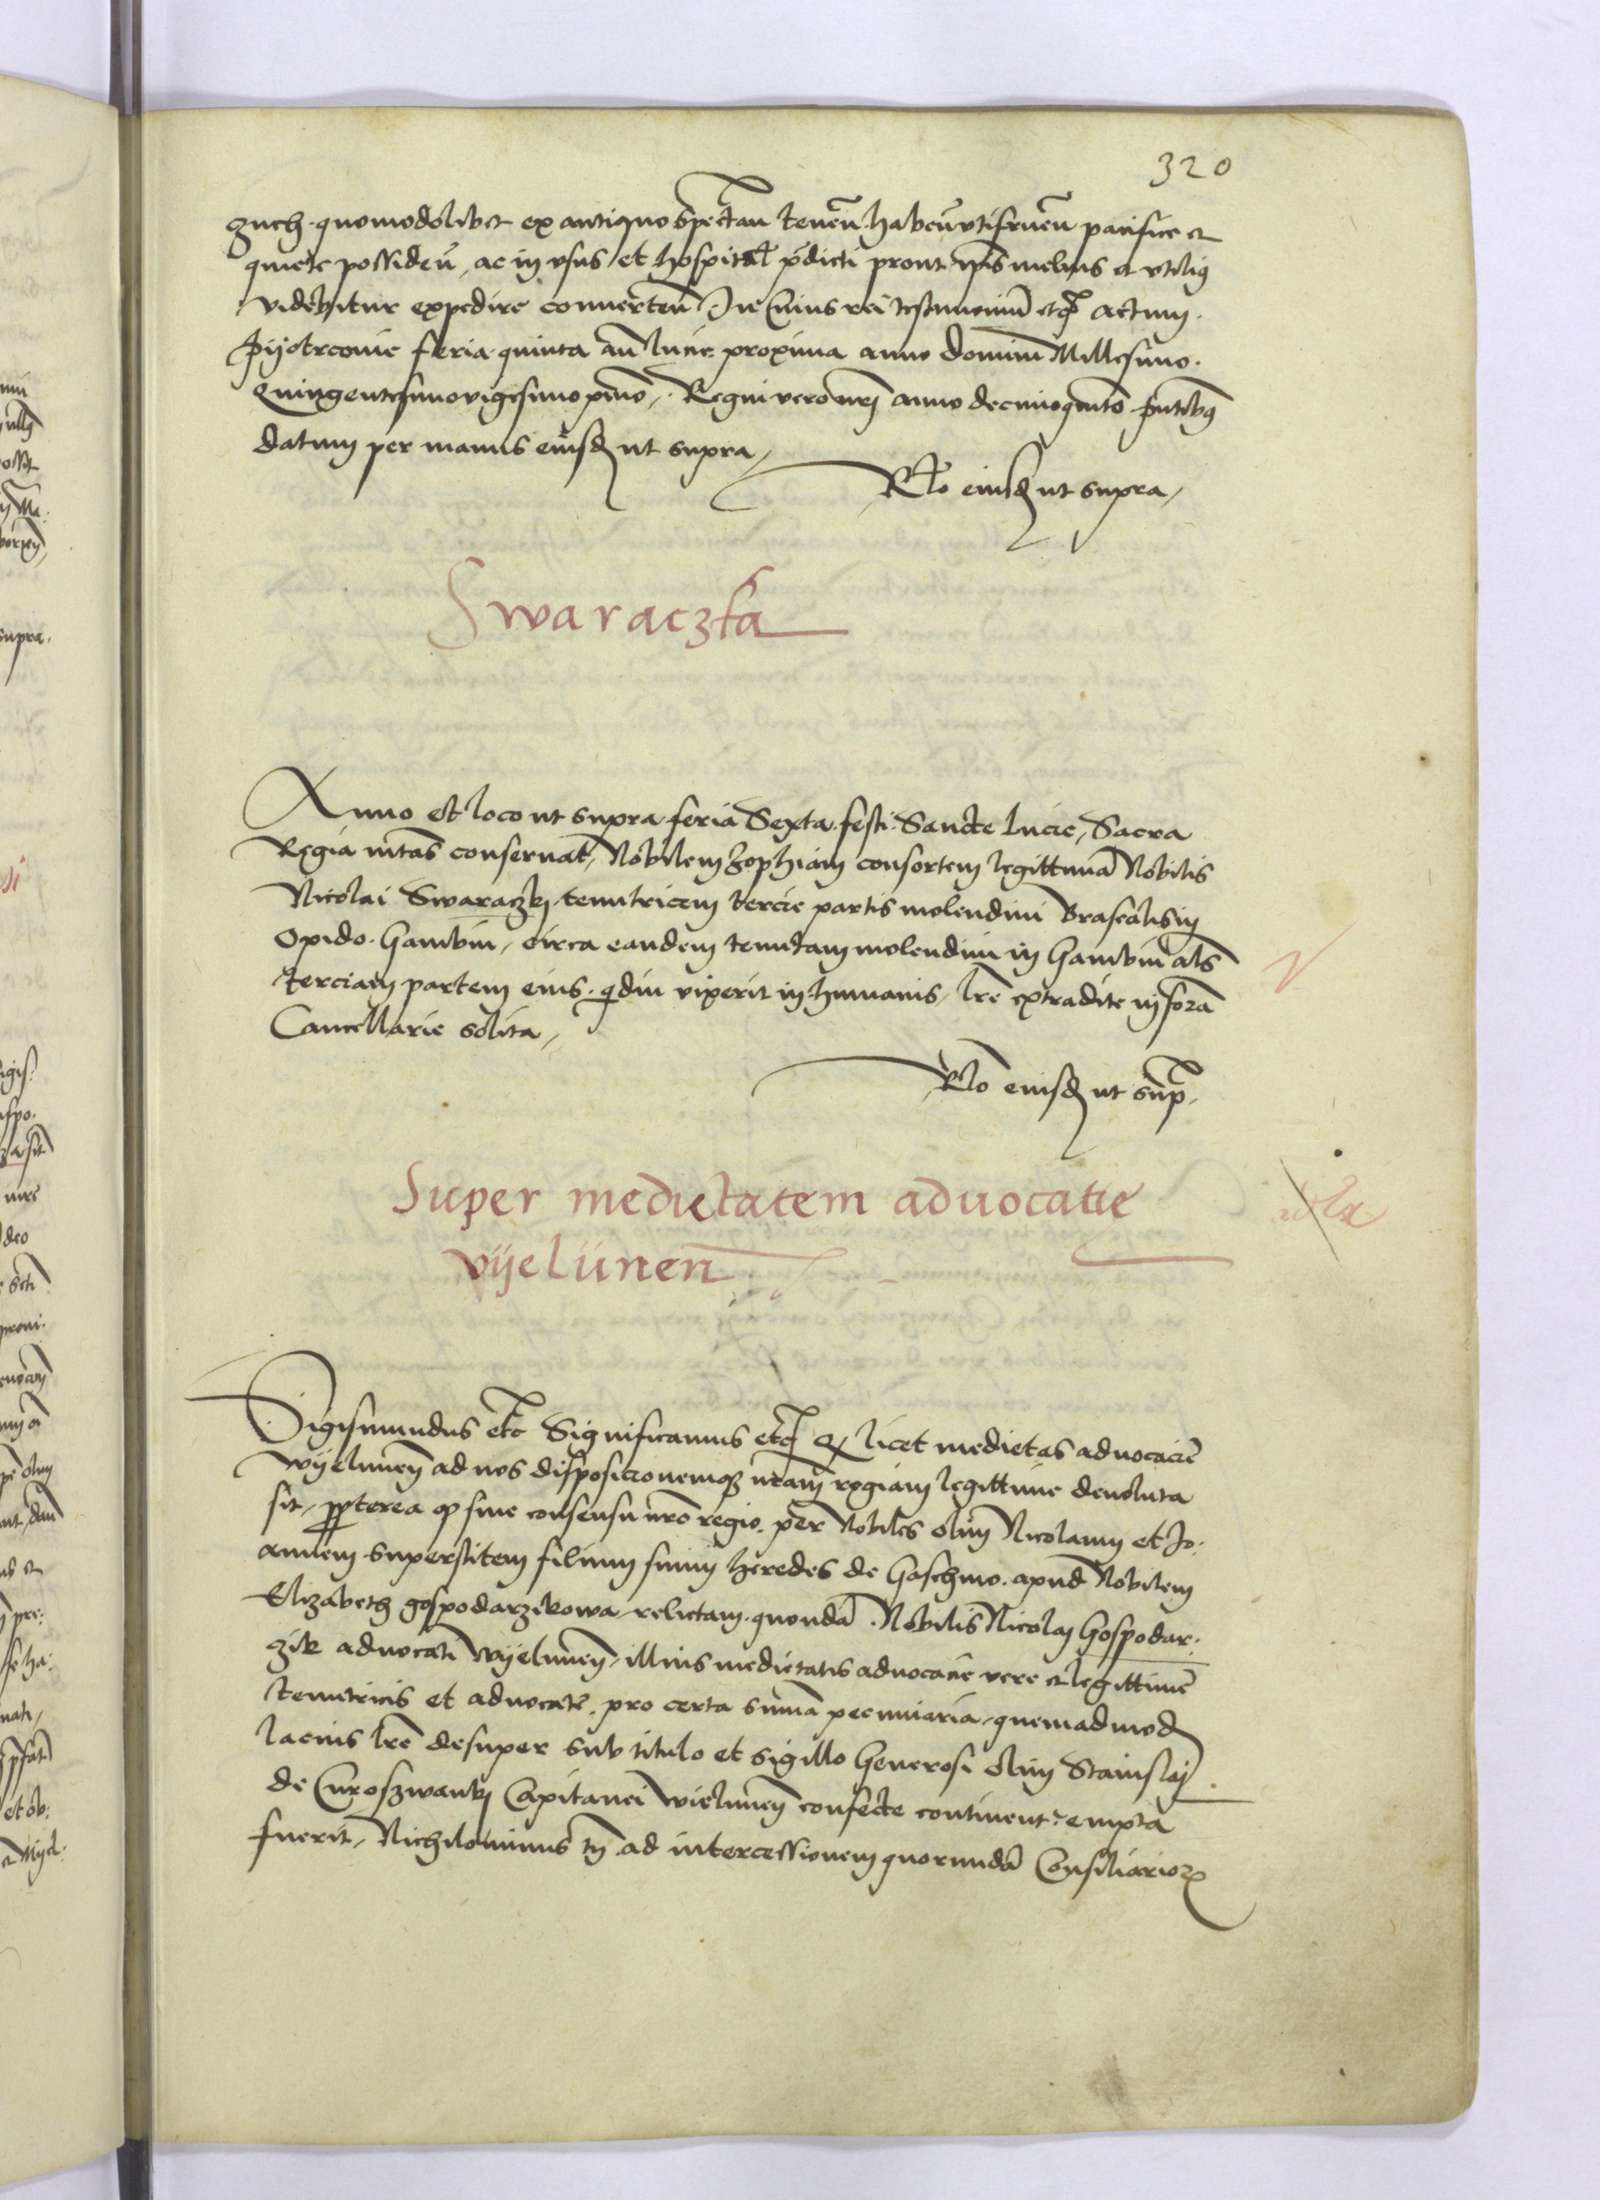 320
quomodolibet ex antiquo spectan̄ tenen̄ haben̄ utifruen̄ pacifice et
quiete possiden̄, ac in usus et hospital p̄dicti prout ip̄is melius et utiliꝯ
videbitur expedire converten̄ In Cuius rei testimoniū etc̄ actum
Pijotrcovie feria quinta an̄ lucie proxima anno domini Millesimo
Quingentesimo vigesimo p̄mo, Regni vero nr̄j anno decimoquinto p̄ntibꝯ
datum per manus eiusd̄ ut supra,
Rl̄o eiusd̄ ut supra,
Swaraczka
Anno et loco ut supra feria Sexta festi Sancte lucie, Sacra
Regia mtās conservat, Nobilem Zophiam consortem legittimā Nobilis
Nicolai Swaraczkj tenutricem tercie partis molendini Brasealis in
Opido Gambin, circa eandem tenutam molendini in Gambin als̄
terciam partem eius qdiu vixerit in humanis, lr̄e extradite in formā
Cancellarie solita,
Rl̄o eiusd̄ ut sup̄
Super medietatem advocatie
vijelunen̄
Sigismundus etc̄ Significamus etc̄ Q licet medietas advocacie
wijelunen̄ ad nos disposicionemqꝫ nr̄am regiam legittime devoluta
sit, ꝓpterea ꝙ sine consensu nr̄o regio per Nobiles olim Nicolaum et Jo:
annem superstitem filium suum heredes de Gaschino apud Nobilem
Elizabeth gospodarzikowa relictam quondā Nobilis Nicolaj Gospodar:
zik advocati Wijelunen̄, illius medietatis advocacie vere et legittime
tenutricis et advocate pro certa summa pecuniaria, quemadmod̄
lacius lr̄e desuper sub titulo et sigillo Generosi olim Stanislaj
de Curoszwankj Capitanei wielunen̄ confecte continent, empta
fuerit, Nichilominus tn̄ ad intercessionem quorundā Consiliarioꝝ